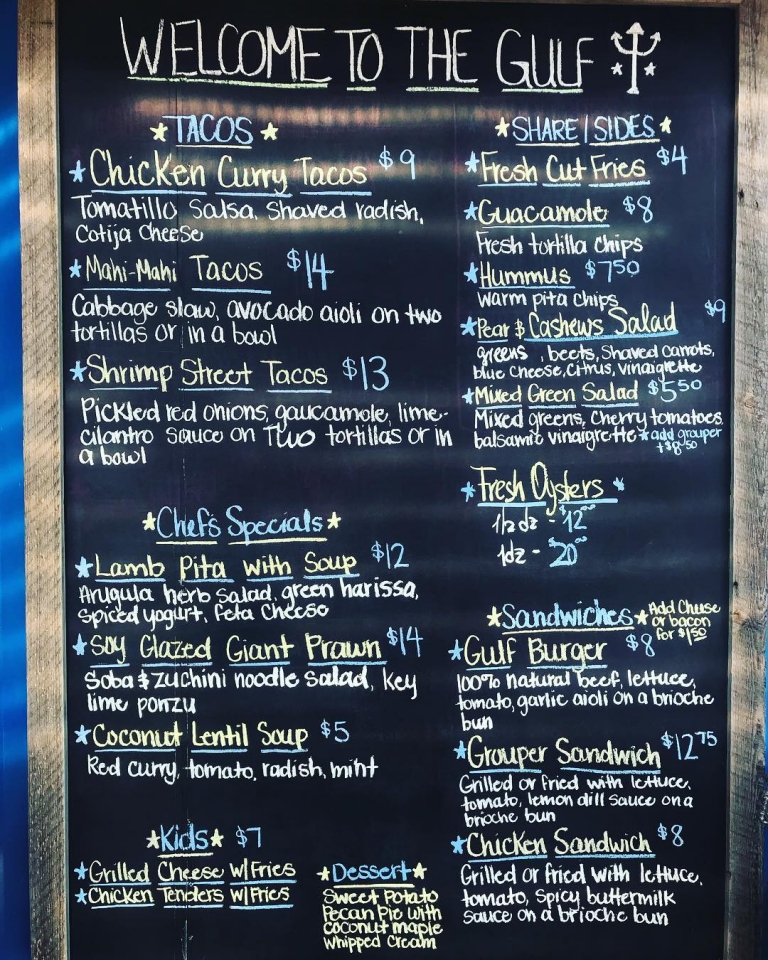 WELCOME TO THE GULF
TACOS
Chicken Curry Tacos $9
Tomatillo Salsa, Shaved radish,
Cotija Cheese
Mahi-Mahi Tacos $14
Cabbage slaw, avocado aioli on two
tortillas or in a bowl
Shrimp Street Tacos $13
Pickled red onions, gaucamole, lime-
cilantro sauce on Two tortillas or in
a bowl
Chef's Specials
Lamb Pita with Soup $12
Arugula herb Salad, green harissa,
Spiced yogurt, Feta Cheese
Soy Glazed Giant Prawn $14
Soba & zuchini noodle salad, key
lime ponzu
Coconut Lentil Soup $5
Red curry, tomato, radish, mint
Kids $7
Grilled Cheese w/Fries
Chicken Tenders w/Fries
Dessert
Sweet Potato
Pecan Pie with
coconut maple
whipped Cream
SHARE/SIDES
Fresh Cut Fries $4
Guacamole $8
Fresh tortilla Chips
Hummus $750
Warm pita chips
Pear & Cashews Salad $9
greens, beets, Shaved Carrots,
blue Cheese, citrus, vinaigrette
Mixed Green Salad $550
Mixed greens, Cherry tomatoes
balsamic vinaigrette *add grouper
+$850
Fresh Oysters
1/2 dz - $1200
1dz - $2000
Sandwiches Add Cheese
or bacon
for $150
Gulf Burger $8
100% natural beef, lettuce,
tomato, garlic aioli on a brioche
bun
Grouper Sandwich $1275
Grilled or fried with lettuce,
tomato, lemon dill sauce on a
brioche bun
Chicken Sandwich $8
Grilled or fried with lettuce,
tomato, spicy buttermilk
sauce on a brioche bun